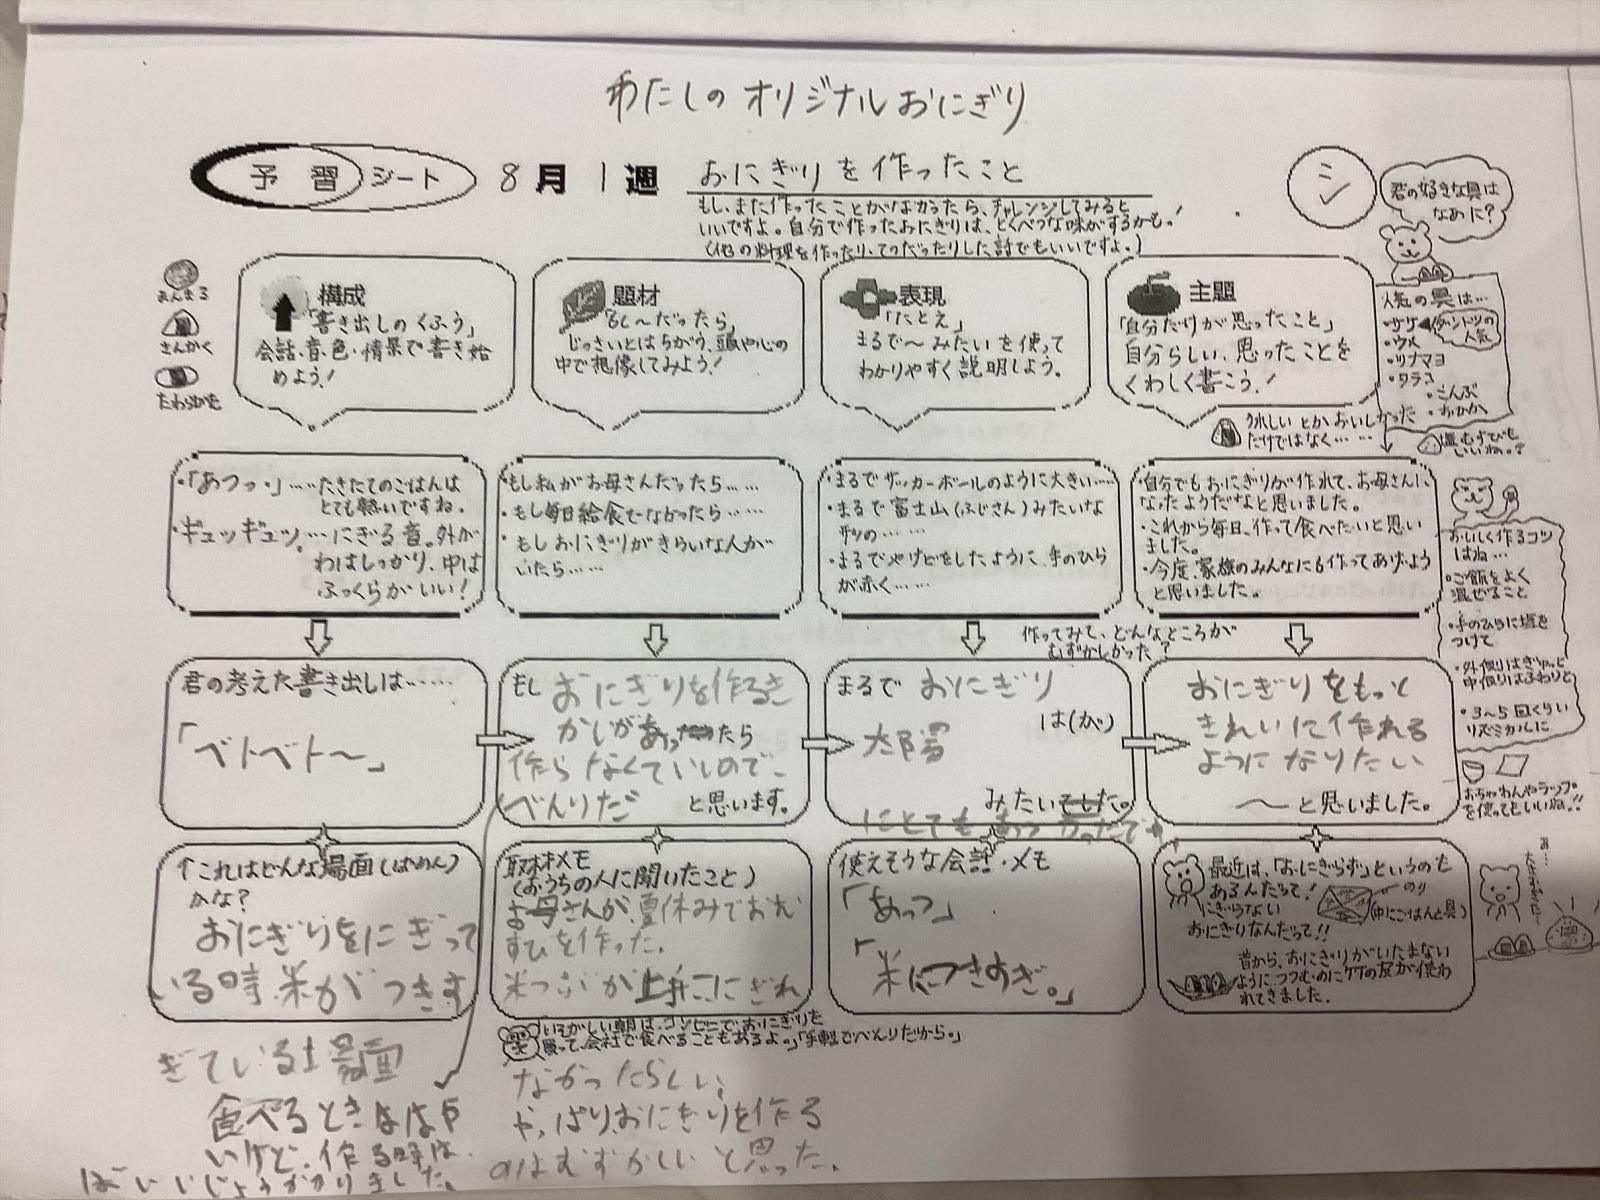 わたしのオリジナルおにぎり
予習シート 8月1週 おにぎりを作ったこと
もし、まだ作ったことがなかったら、チャレンジしてみると
いいですよ。自分で作ったおにぎりは、とくべつな味がするかも!
(他の料理を作ったり、てつだったりした話でもいいですよ。)
シン
君の好きな具は
なあに?
まんまる
さんかく
たわらがた
構成
「書き出しのくふう」
会話・音・色・情景で書き始
めよう!
題材
「もし〜だったら」
じっさいとはちがう、頭や心の
中で想像してみよう!
表現
「たとえ」
まるで〜みたいを使って
わかりやすく説明しよう。
主題
「自分だりが思ったこと」
自分らしい、思ったことを
くわしく書こう!
人気の具は…
・サケ
ダントツの
人気
・ウメ
・ツナマヨ
・タラコ
・こんぶ
・おかか
塩むすびも
いいね。
うれしいとかおいしかった
だけではなく……
・「あつっ・」……たきたてのごはんは
とても熱いですね。
・ギュッギュッ。…にぎる音。外が
わはしっかり、中は
ふっくらがいい!
・もし私がお母さんだったら……
・もし毎日給食でなかったら……
・もしおにぎりがきらいな人が
いたら……
・まるでサッカーボールのように大きい……
・まるで富士山(ふじさん)みたいな
形の……
・まるでやけどをしたように、手のひら
が赤く……
・自分でもおにぎりが作れて、お母さんに
なったようだなと思いました。
・これから毎日、作って食べたいと思い
ました。
・今度、家族のみんなにも作ってあげよう
と思いました。
おいしく作るコツ
はね…
・ご飯をよく
混ぜること
・手のひらに塩を
つけて
・外側はぎゅっと
中側はふわりと
・3〜5回くらい
リズミカルに
おちゃわんやラップ
を使ってもいいね!!
作ってみて、どんなところが
むずかしかった?
君の考えた書き出しは……
「ベトベト〜」
もしおにぎりを作るき
かいがあったら
作らなくていいので、
べんりだ
と思います。
まるでおにぎり
は(が)
太陽
みたいでした。
にとてもあつかったです
おにぎりをもっと
きれいに作れる
ようになりたい
〜と思いました。
↑これはどんな場面(ばめん)
かな?
おにぎりをにぎって
いる時、米がつきす
ぎている場面
取材メモ
(おうちの人に聞いたこと)
お母さんが、夏休みでおむ
すびを作った。
米つぶが上手ににぎれ
なかったらしい、
やっぱりおにぎりを作る
のはむずかしいと思った。
使えそうな会話・メモ
「あっつ」
「米につきすぎ。」
最近は、「おにぎらず」というのも
あるんだって!
にぎらない
おにぎりなんだって!!
のり
(中にごはんと具)
昔から、おにぎりがいたまない
ようにつつむのに竹の皮が使わ
れてきました。
いそがしい朝は、コンビニでおにぎりを
買って、会社で食べることもあるよ。「手軽でべんりだから。」
食べるときははや
いけど、作る時は、
ばいいじょうかかりました。